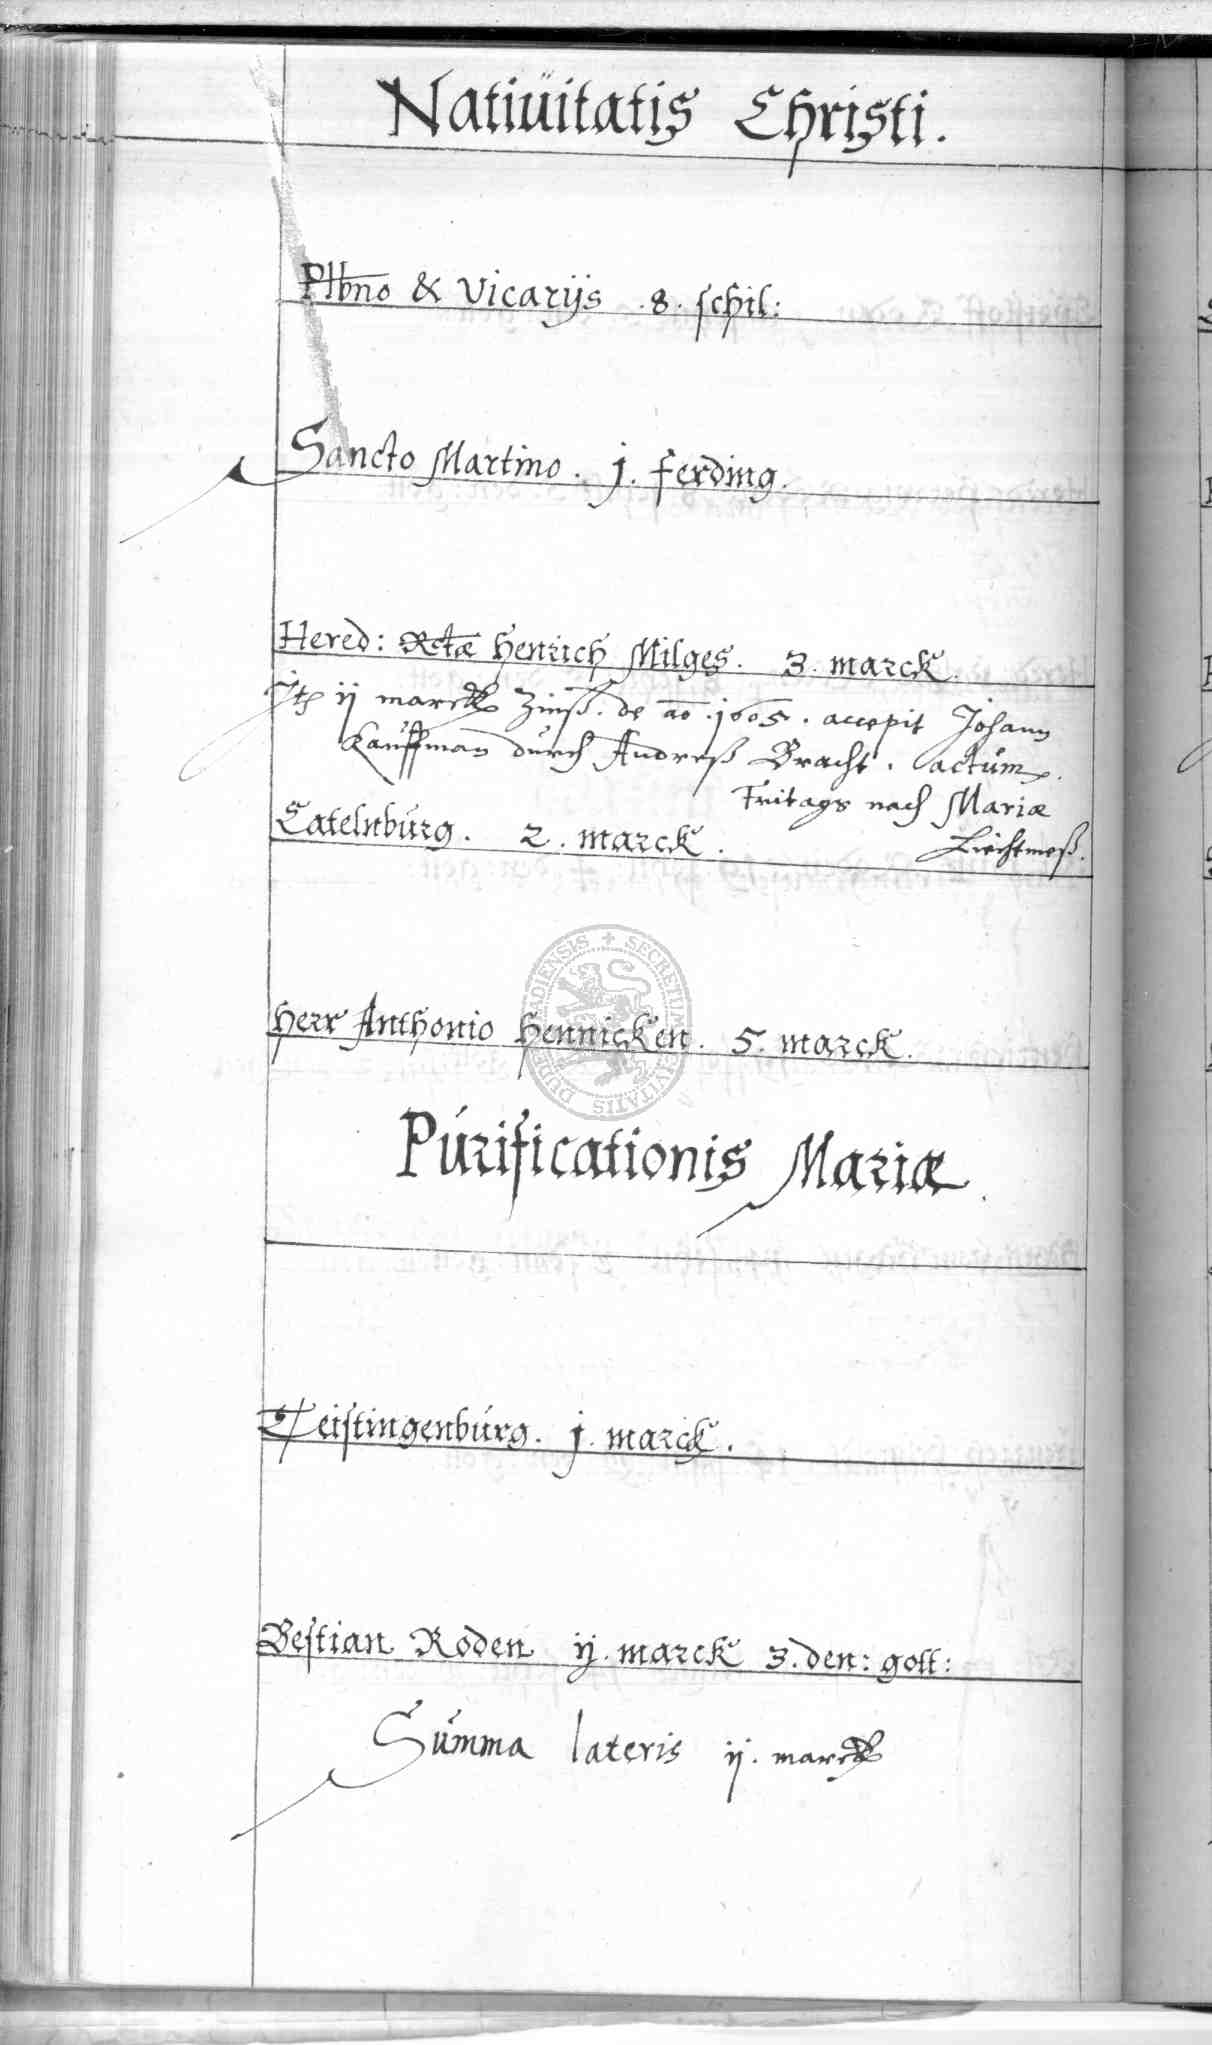 Natiuitatis Christi.
Plbno & vicarijs .8. schil:
Sancto Martino. j. ferding.
Hered: Rctæ Henrich Milges. 3. marck.
Jt ij marck Zinß. de ao .1605. accepit Johann
Kauffman durch Andreß Bracht. actum.
Fritags nach Mariæ
Liechtmeß.
Catelnburg. 2. marck.
Herr Anthonio Hennicken. 5. marck.
SECRETUM CIVITATIS DUDERSTADIENSIS
Purificationis Mariæ
Teistingenburg. j. marck.
Bestian Roden ij. marck 3. den: gott:
Summa lateris ij. marck